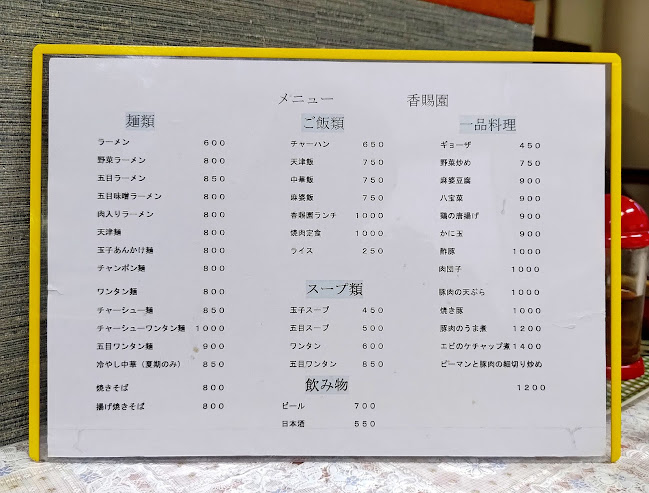 メニュー 香賜園
麺類
ラーメン 600
野菜ラーメン 800
五目ラーメン 850
五目味噌ラーメン 800
肉入りラーメン 800
天津麺 800
玉子あんかけ麺 800
チャンポン麺 800
ワンタン麺 800
チャーシュー麺 850
チャーシューワンタン麺 1000
五目ワンタン麺 900
冷やし中華(夏期のみ) 850
焼きそば 800
揚げ焼きそば 800
ご飯類
チャーハン 650
天津飯 750
中華飯 750
麻婆飯 750
香賜園ランチ 1000
焼肉定食 1000
ライス 250
スープ類
玉子スープ 450
五目スープ 500
ワンタン 600
五目ワンタン 850
飲み物
ビール 700
日本酒 550
一品料理
ギョーザ 450
野菜炒め 750
麻婆豆腐 900
八宝菜 900
鶏の唐揚げ 900
かに玉 900
酢豚 1000
肉団子 1000
豚肉の天ぷら 1000
焼き豚 1000
豚肉のうま煮 1200
エビのケチャップ煮 1400
ピーマンと豚肉の細切り炒め
1200